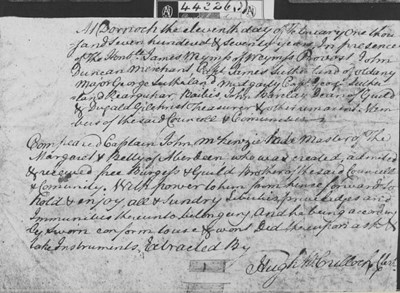 44226
At Dornoch the eleventh day of February One thou
sand Seven hundred & seventy years. In presence
of The Honble James Wemyss of Wemyss Provost John
Duncan Merchant, & James Sutherland of
Major George Sutherland
at Baillies John Barclay Dean of Guild
& Dugald Gilchrist Treasurer & other remanent Mem
bers of the said Council & Community
Compeared Captain John McKenzie Master of The
Margaret & Betty of Aberdeen who was created, admitted
& received free Burgess & Guild Brother of the said Council
& Community. With power to him from hence forward to
hold & enjoy all & Sundry Liberties priviledges and
Immunities thereunto belonging And he being according
ly sworn conform to use & wont Did thereupon ask &
take Instruments, Extracted By
Hugh McCulloch Clerk